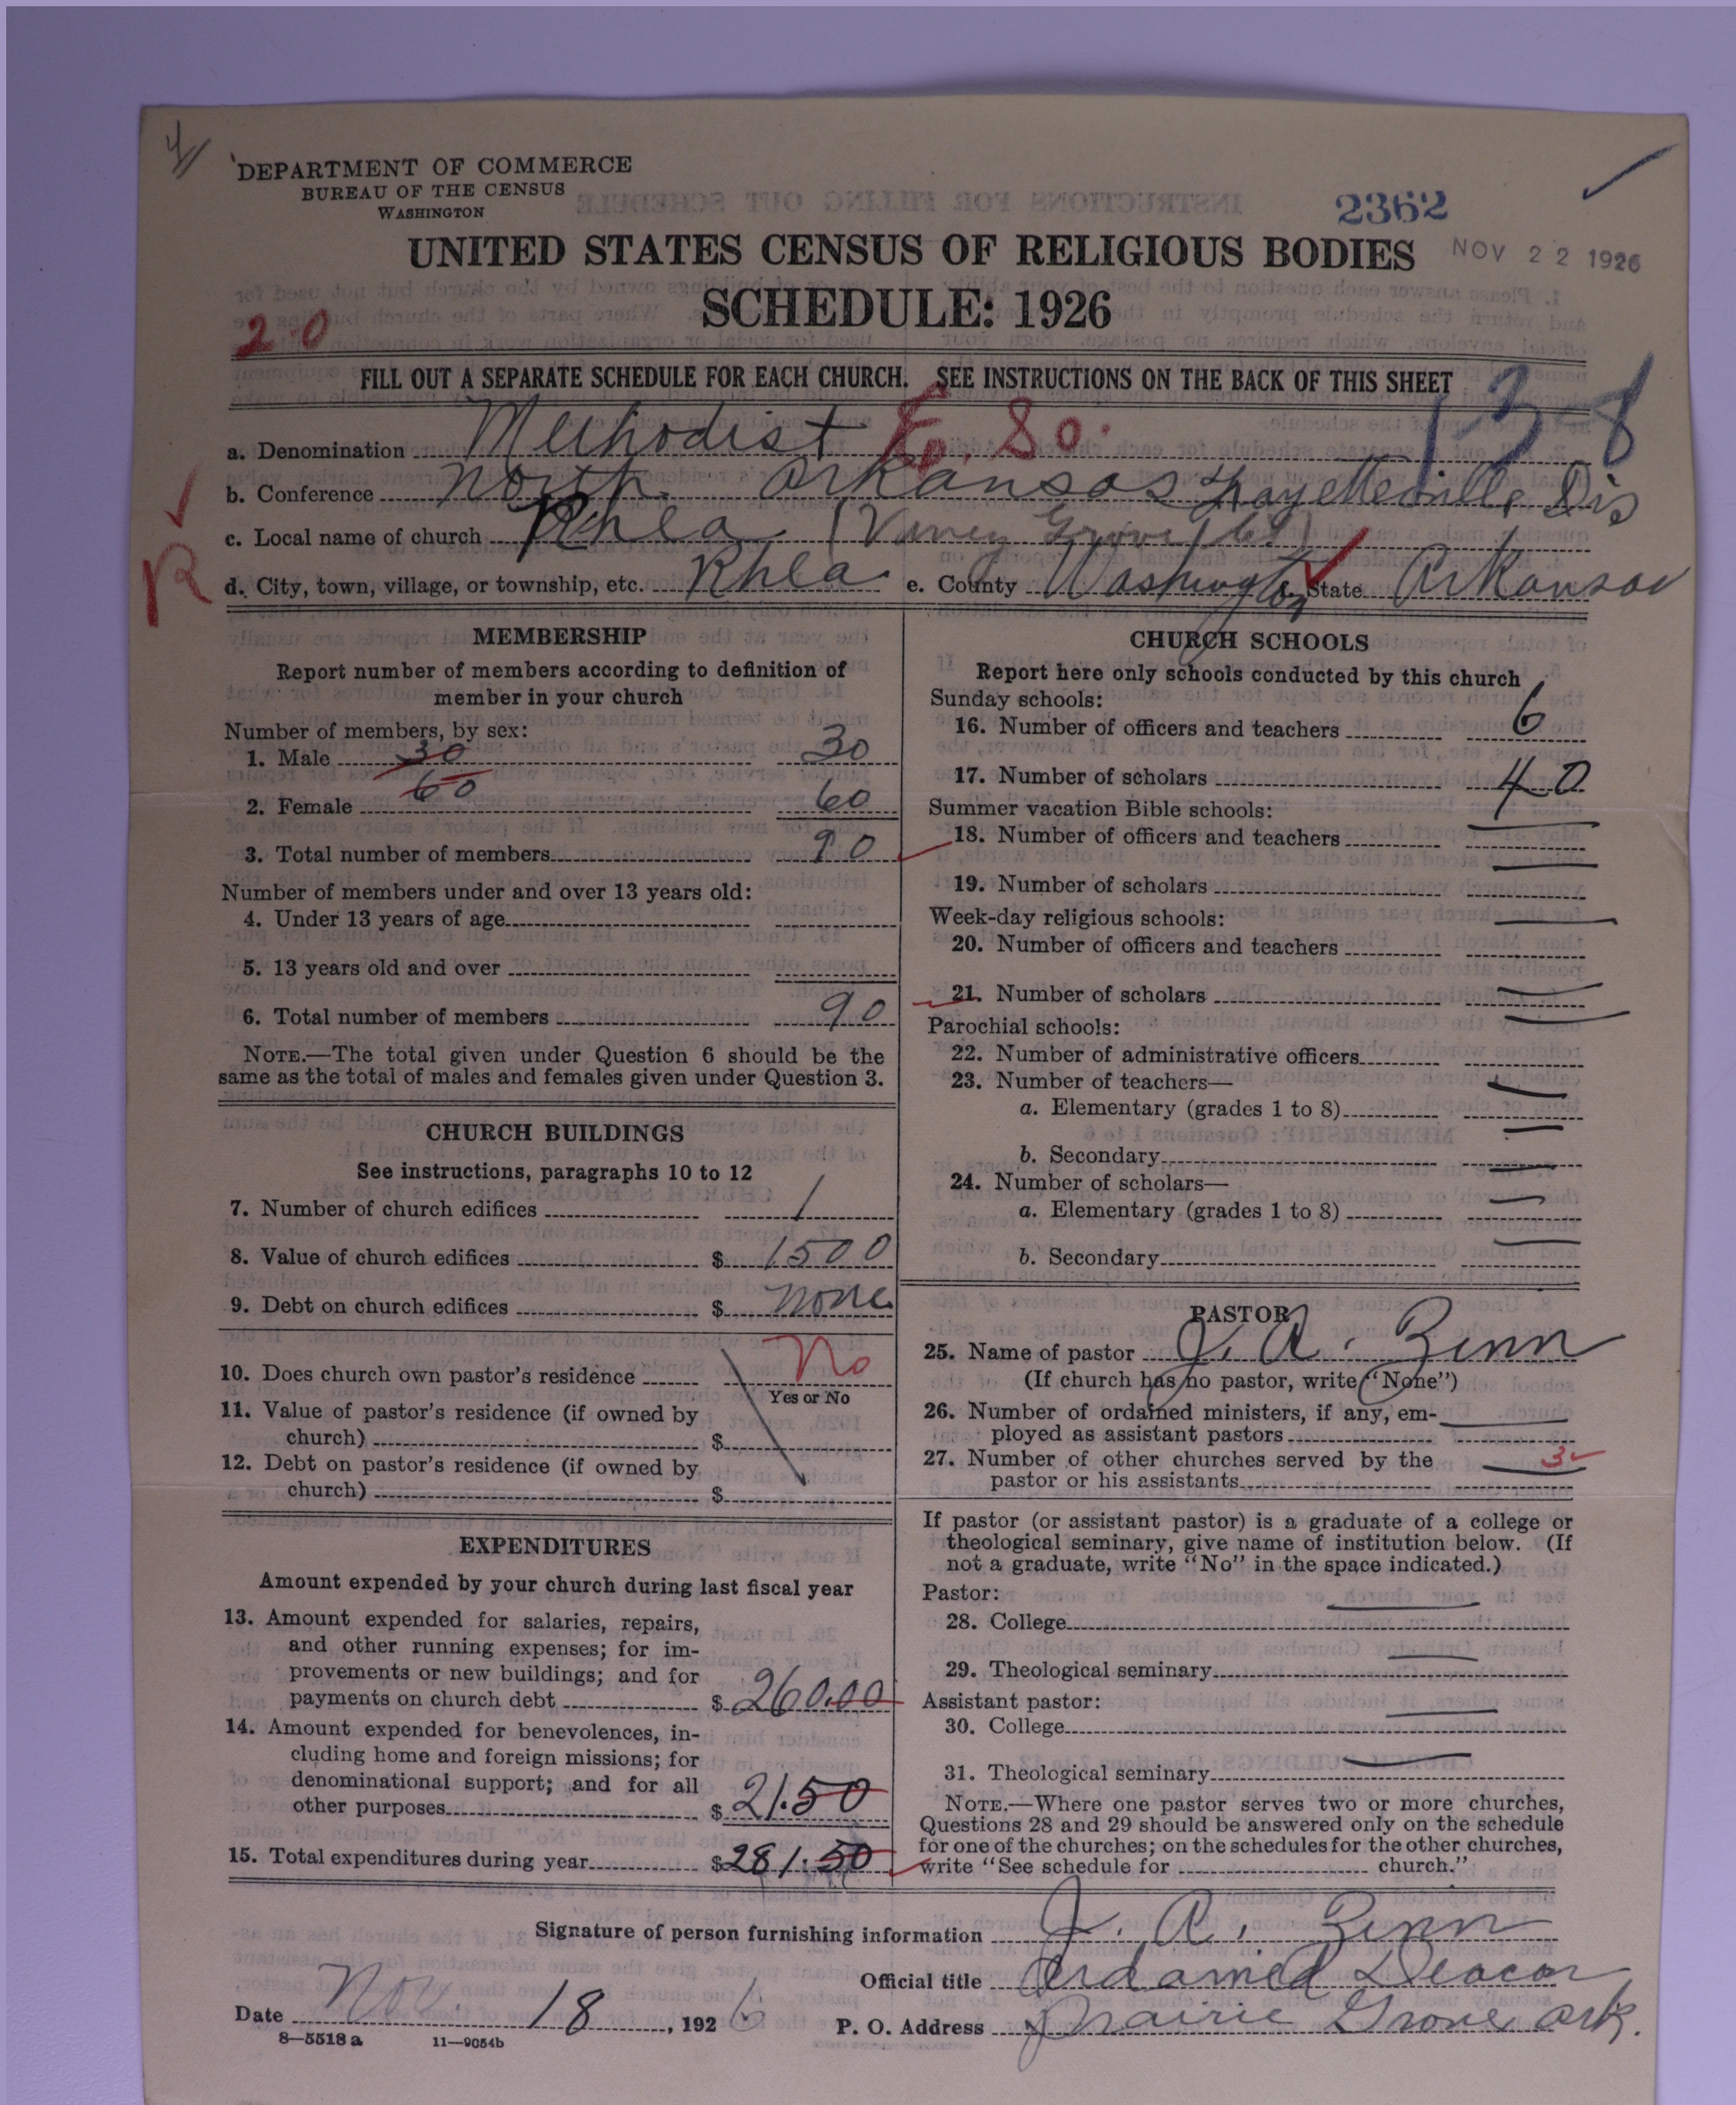 DEPARTMENT OF COMMERCE
BUREAU OF THE CENSUS
WASHINGTON
2362
UNITED STATES CENSUS OF RELIGIOUS BODIES
NOV 22 1926
SCHEDULE: 1926
20
FILL OUT A SEPARATE SCHEDULE FOR EACH CHURCH. SEE INSTRUCTIONS ON THE BACK OF THIS SHEET
138
a. Denomination Methodist Ep. So.
b. Conference North Arkansas Fayetteville Dis
c. Local name of church Rhea (Viney Grove
R
d. City, town, village, or township, etc. Rhea e. County Washington f. State Arkansas
MEMBERSHIP
Report number of members according to definition of
member in your church
Number of members, by sex:
1. Male 30 30
2. Female 60 60
3. Total number of members 90
Number of members under and over 13 years old:
4. Under 13 years of age
5. 13 years old and over
6. Total number of members 90
NOTE.—The total given under Question 6 should be the
same as the total of males and females given under Question 3.
CHURCH BUILDINGS
See instructions, paragraphs 10 to 12
7. Number of church edifices 1
8. Value of church edifices $ 1500
9. Debt on church edifices $ none
10. Does church own pastor's residence No
Yes or No
11. Value of pastor's residence (if owned by
church) $
12. Debt on pastor's residence (if owned by
church) $
EXPENDITURES
Amount expended by your church during last fiscal year
13. Amount expended for salaries, repairs,
and other running expenses; for im-
provements or new buildings; and for
payments on church debt $ 260.00
14. Amount expended for benevolences, in-
cluding home and foreign missions; for
denominational support; and for all
other purposes $ 21.50
15. Total expenditures during year $ 281.50
CHURCH SCHOOLS
Report here only schools conducted by this church
Sunday schools:
16. Number of officers and teachers 6
17. Number of scholars 40
Summer vacation Bible schools:
18. Number of officers and teachers
19. Number of scholars
Week-day religious schools:
20. Number of officers and teachers
21. Number of scholars
Parochial schools:
22. Number of administrative officers
23. Number of teachers—
a. Elementary (grades 1 to 8)
b. Secondary
24. Number of scholars—
a. Elementary (grades 1 to 8)
b. Secondary
PASTOR
25. Name of pastor J. A. Zinn
(If church has no pastor, write "None")
26. Number of ordained ministers, if any, em-
ployed as assistant pastors
27. Number of other churches served by the 3
pastor or his assistants
If pastor (or assistant pastor) is a graduate of a college or
theological seminary, give name of institution below. (If
not a graduate, write "No" in the space indicated.)
Pastor:
28. College
29. Theological seminary
Assistant pastor:
30. College
31. Theological seminary
NOTE.—Where one pastor serves two or more churches,
Questions 28 and 29 should be answered only on the schedule
for one of the churches; on the schedules for the other churches,
write "See schedule for church."
Signature of person furnishing information J. A. Zinn
Official title Ordained Deacon
Date Nov. 18, 1926
P. O. Address Prairie Grove Ark.
8—5518 a 11—9054b